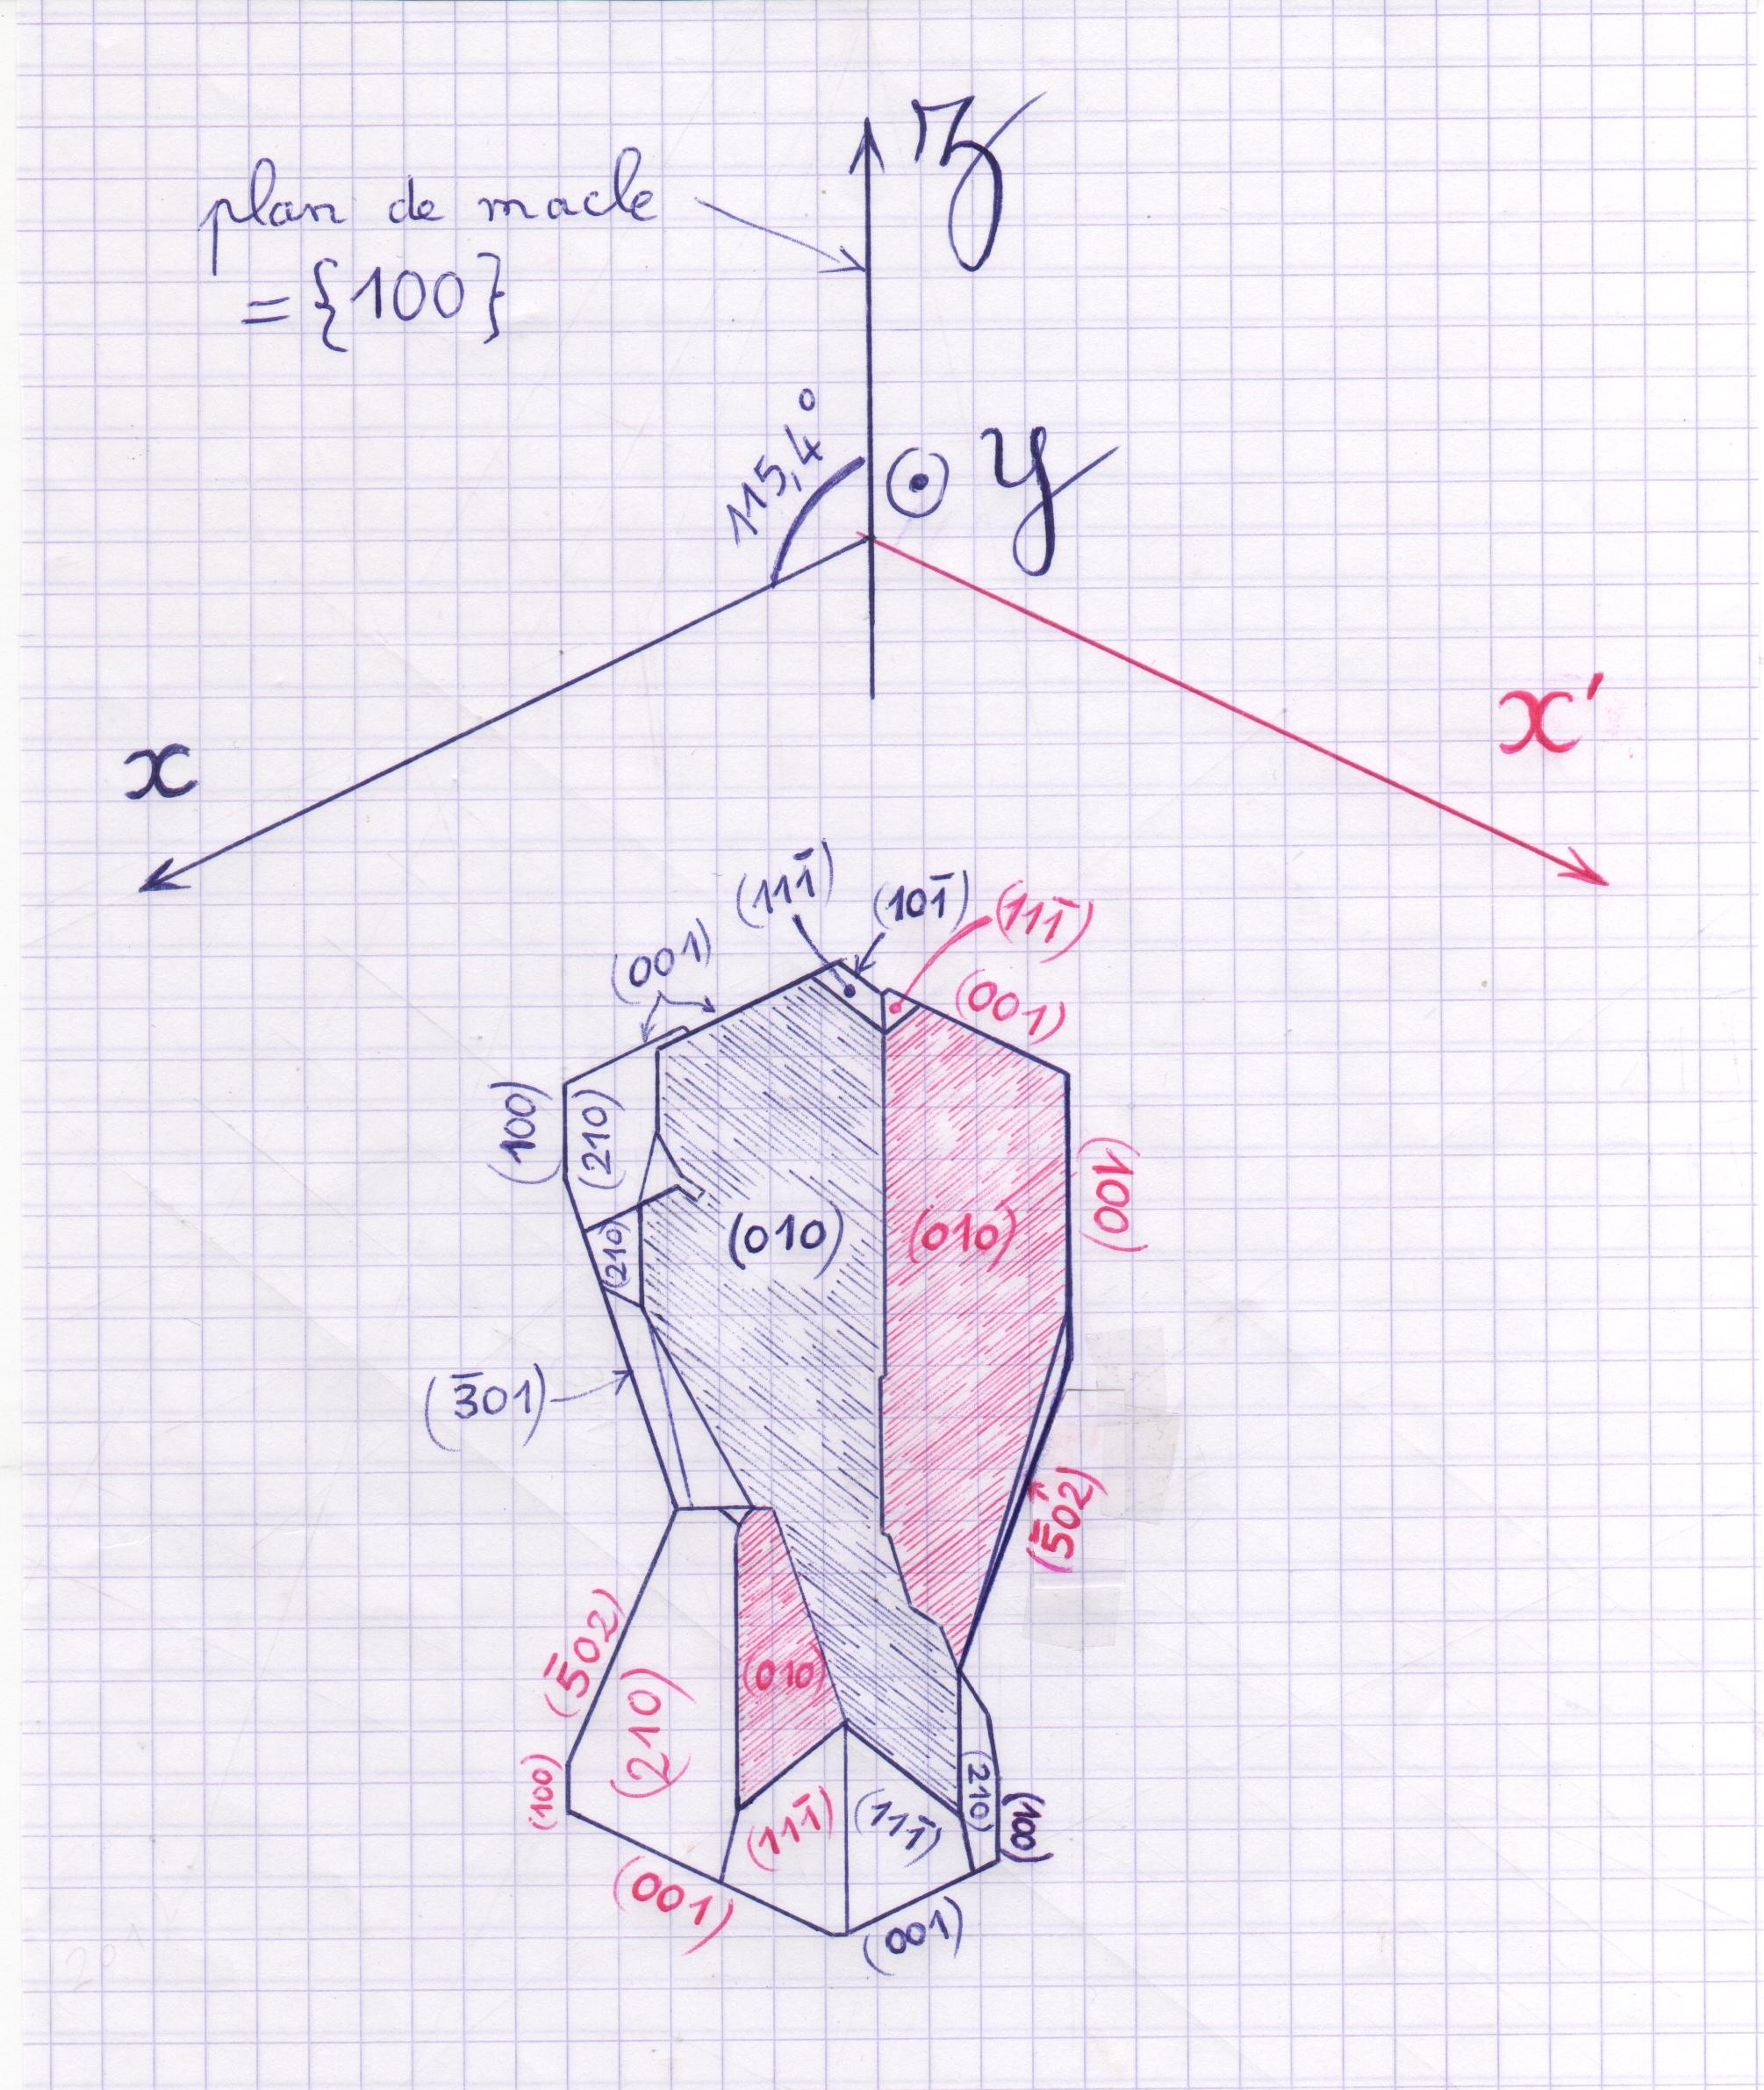 z
plan de macle
= {100}
115,4°
y
x
x'
(111̄)
(101̄)
(111̄)
(001)
(001)
(100)
(210)
(100)
(210)
(010)
(010)
(3̄01)
(5̄02)
(5̄02)
(210)
(010)
(100)
(111̄)
(111̄)
(210)
(100)
(001)
(001)